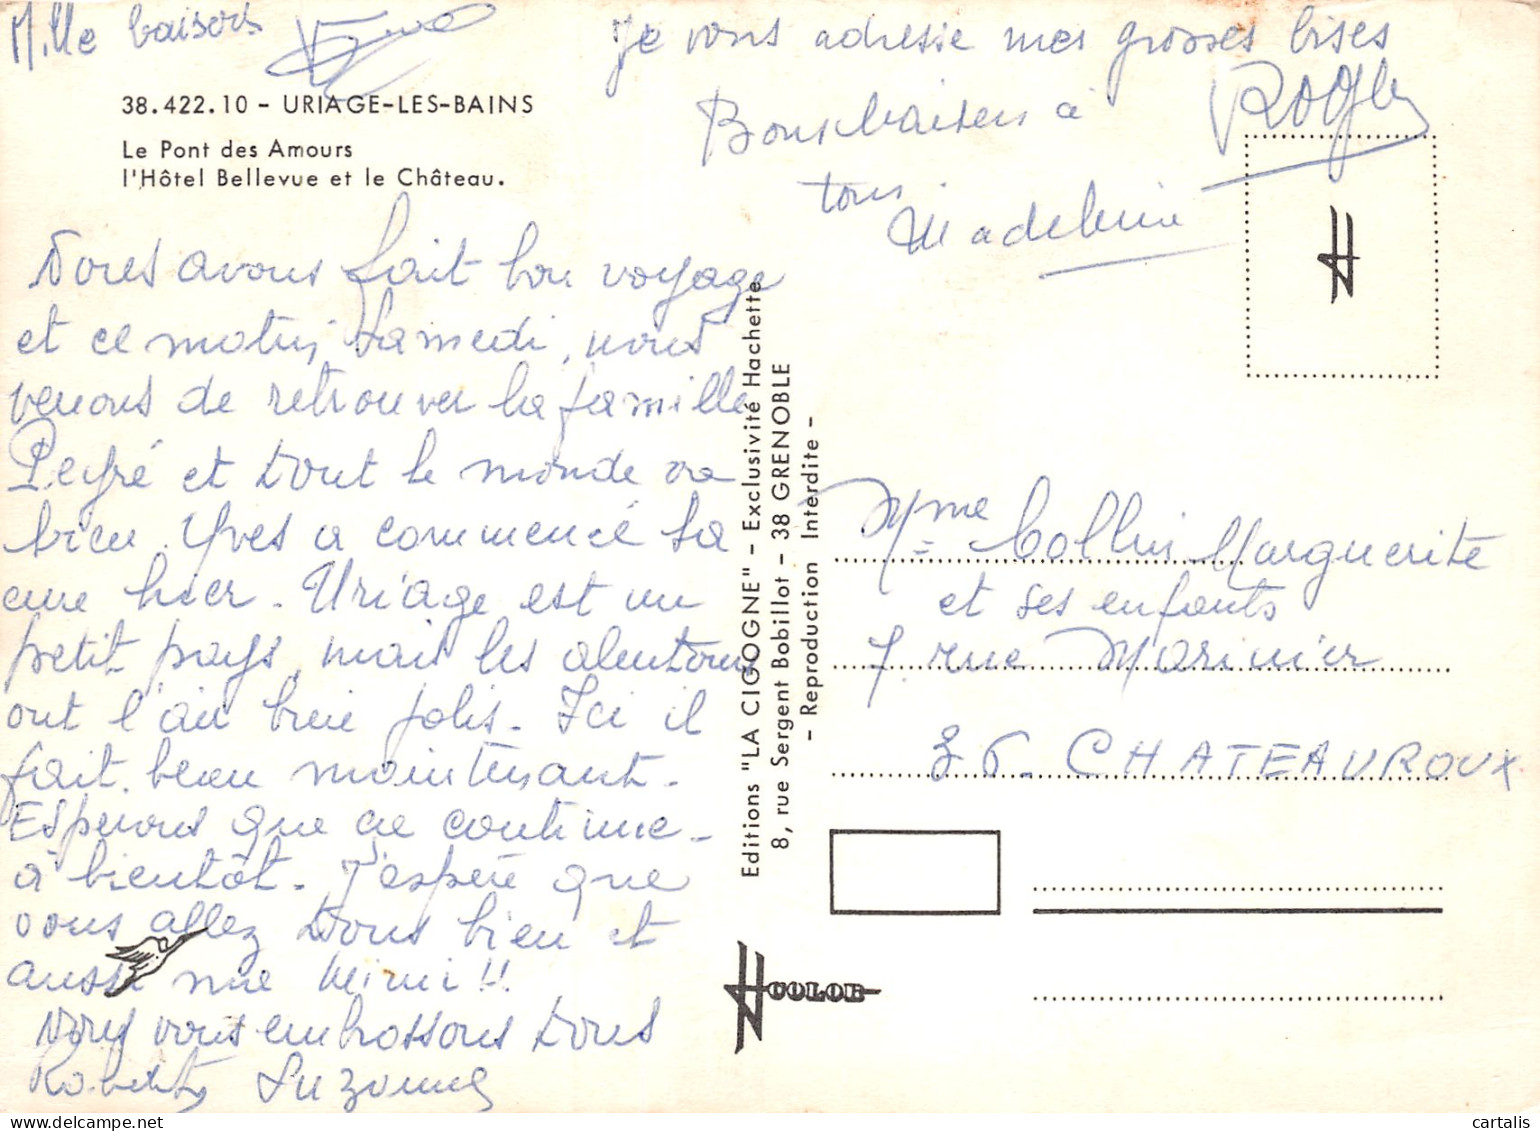 Mille baisers
38.422.10 - URIAGE-LES-BAINS
Le Pont des Amours
l'Hôtel Bellevue et le Château.
Nous avons fait bon voyage
et ce matin samedi, nous
venons de retrouver la famille
Peyré et tout le monde va
bien. Yves a commencé sa
cure hier. Uriage est un
petit pays, mais les alentours
ont l'air bien jolis. Ici il
fait beau maintenant.
Espérons que ça continue -
à bientôt. J'espère que
vous allez tous bien et
aussi mimi !!
Nous vous embrassons tous
Suzanne
Je vous adresse mes grosses bises
Roger
Bons baisers à
tous.
Madeleine
Editions "LA CIGOGNE" - Exclusivité Hachette
8, rue Sergent Bobillot - 38 GRENOBLE
- Reproduction Interdite -
H
Mme Collin Marguerite
et ses enfants
7. rue Marinier
36 - CHATEAUROUX
HCOLOR
cartalis